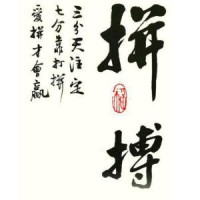 拼搏
三分天注定
七分靠打拼
爱拼才會贏